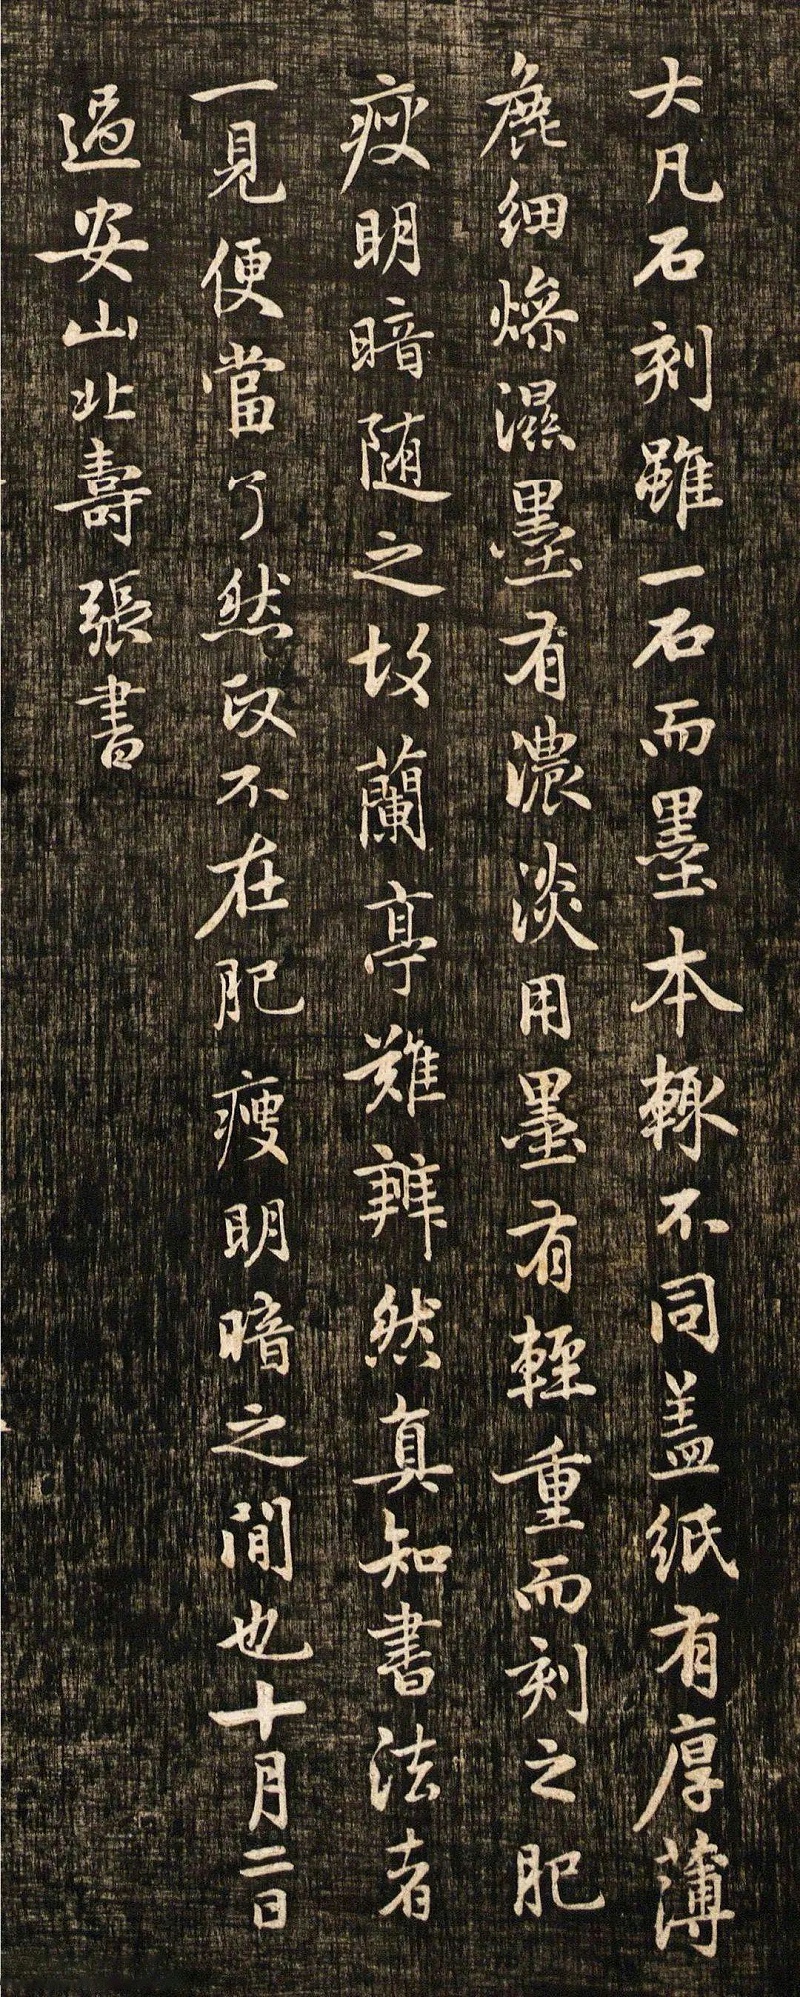 大凡石刻雖一石而墨本輒不同盖紙有厚薄
麁細燥濕墨有濃淡用墨有輕重而刻之肥
瘦明暗随之故蘭亭難辨然真知書法者
一見便當了然政不在肥瘦明暗之間也十月二日
過安山北壽張書